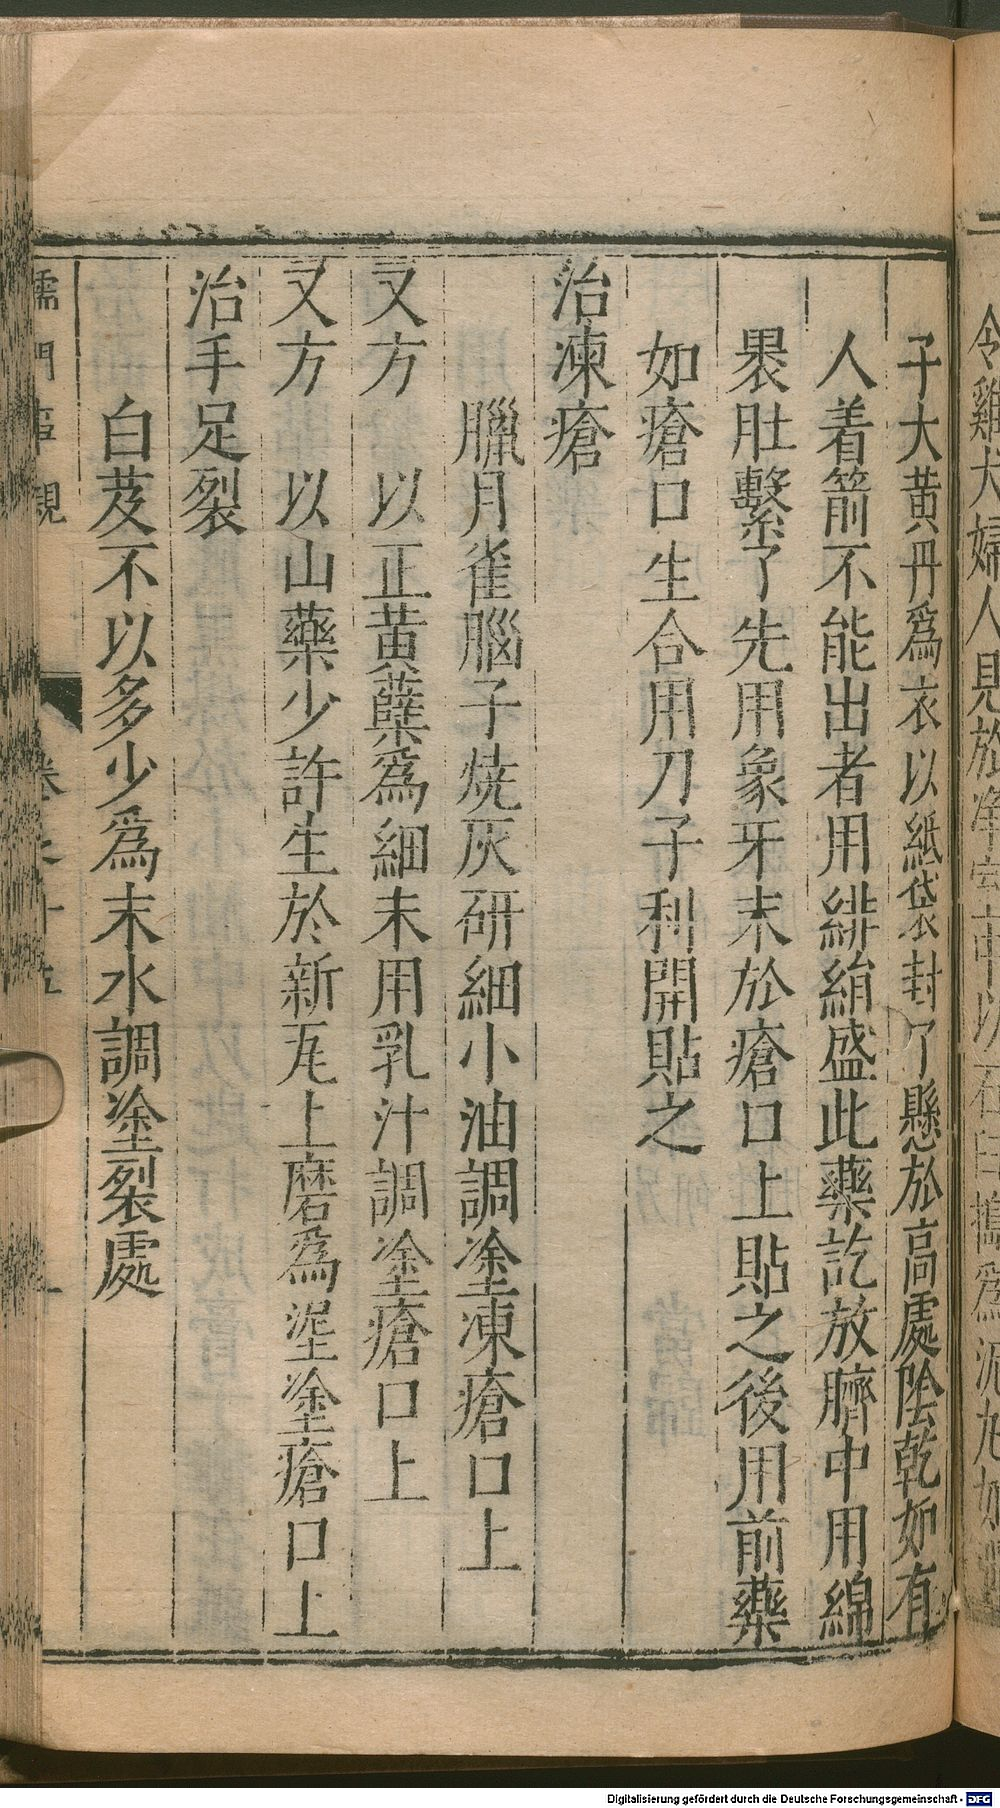 令雞犬婦人見於淨室中以石臼搗爲泥丸如
子大黄丹爲衣以紙袋封了懸於高處陰乾如有
人着箭不能出者用緋絹盛此藥訖放臍中用綿
褁肚繫了先用象牙末於瘡口上貼之後用前藥
如瘡口生合用刀子利開貼之
治凍瘡
臘月雀腦子燒灰研細小油調塗凍瘡口上
又方 以正黄蘗爲細末用乳汁調塗瘡口上
又方 以山藥少許生於新瓦上磨爲泥塗瘡口上
治手足裂
白芨不以多少爲末水調塗裂處
儒門事親 卷之十五
Digitalisierung gefördert durch die Deutsche Forschungsgemeinschaft - DFG